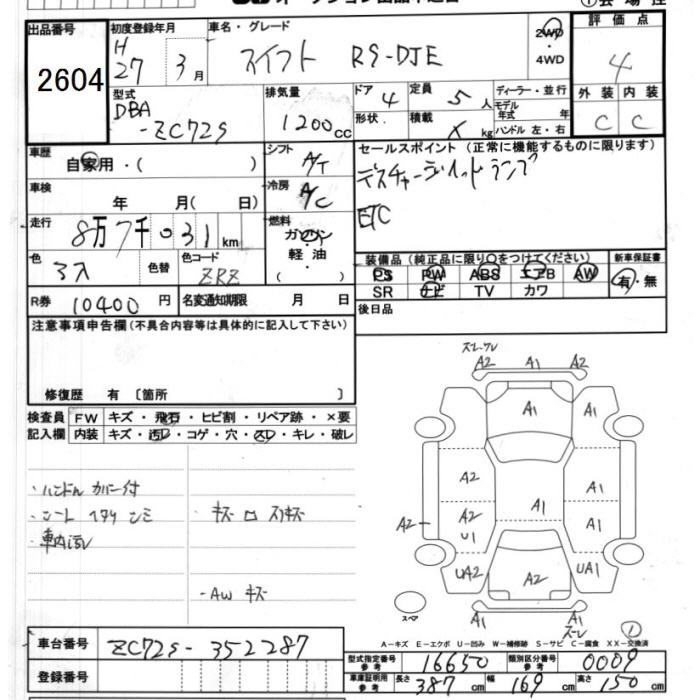 出品番号
2604
初度登録年月
H
27 3月
車名・グレード
スイフト RS-DJE
2WD
・
4WD
評価点
4
外装 内装
C C
型式
DBA
-ZC72S
排気量
1200cc
ドア
4
定員
5人
ディーラー・並行
モデル
年式 年
形状.
積載
X kg
ハンドル 左・右
車歴
自家用・( )
シフト
A/T
セールスポイント (正常に機能するものに限ります)
ディスチャージヘッドランプ
ETC
車検
年 月( 日)
冷房
A/C
走行
8万7千031km
燃料
ガソリン
軽・油
色
色替
色コード
ZRZ
装備品 (純正品に限り○をつけてください)
PS PW ABS エアB AW
SR ナビ TV カワ
新車保証書
有・無
R券
10400円
名変通知期限 月 日
後日品
注意事項申告欄(不具合内容等は具体的に記入して下さい)
修復歴 有 〔箇所 〕
検査員
記入欄
FW キズ・飛石・ヒビ割・リペア跡・×要
内装 キズ・汚レ・コゲ・穴・スレ・キレ・破レ
・ハンドル カバー付
・シート ヘタリ シミ
・車内汚レ
・キズ ロ スリキズ
・AW キズ
A2 A1 A2
A1 A1
A2 A1 A1
A2 A2 A1
U1
UA2 A2 UA1
A1 A1
スペア
A-キズ E-エクボ U-凹み W-補修跡 S-サビ C-腐食 XX-交換済
車台番号
ZC72S-352287
登録番号
型式指定番号
参考
16650
類別区分番号
参考
0009
車庫証明用
参考
長さ
387cm
幅
169cm
高さ
150cm